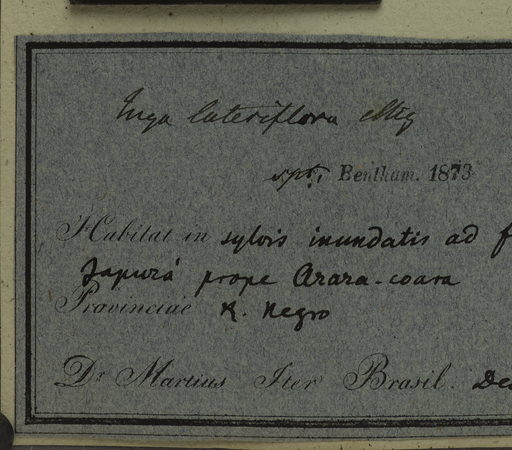 Inga lateriflora Miq
spt; Bentham. 1873
Habitat in sylvis inundatis ad f
Japurá prope Arara-coara
Provinciae R. Negro
Dr Martius Iter Brasil. Dec